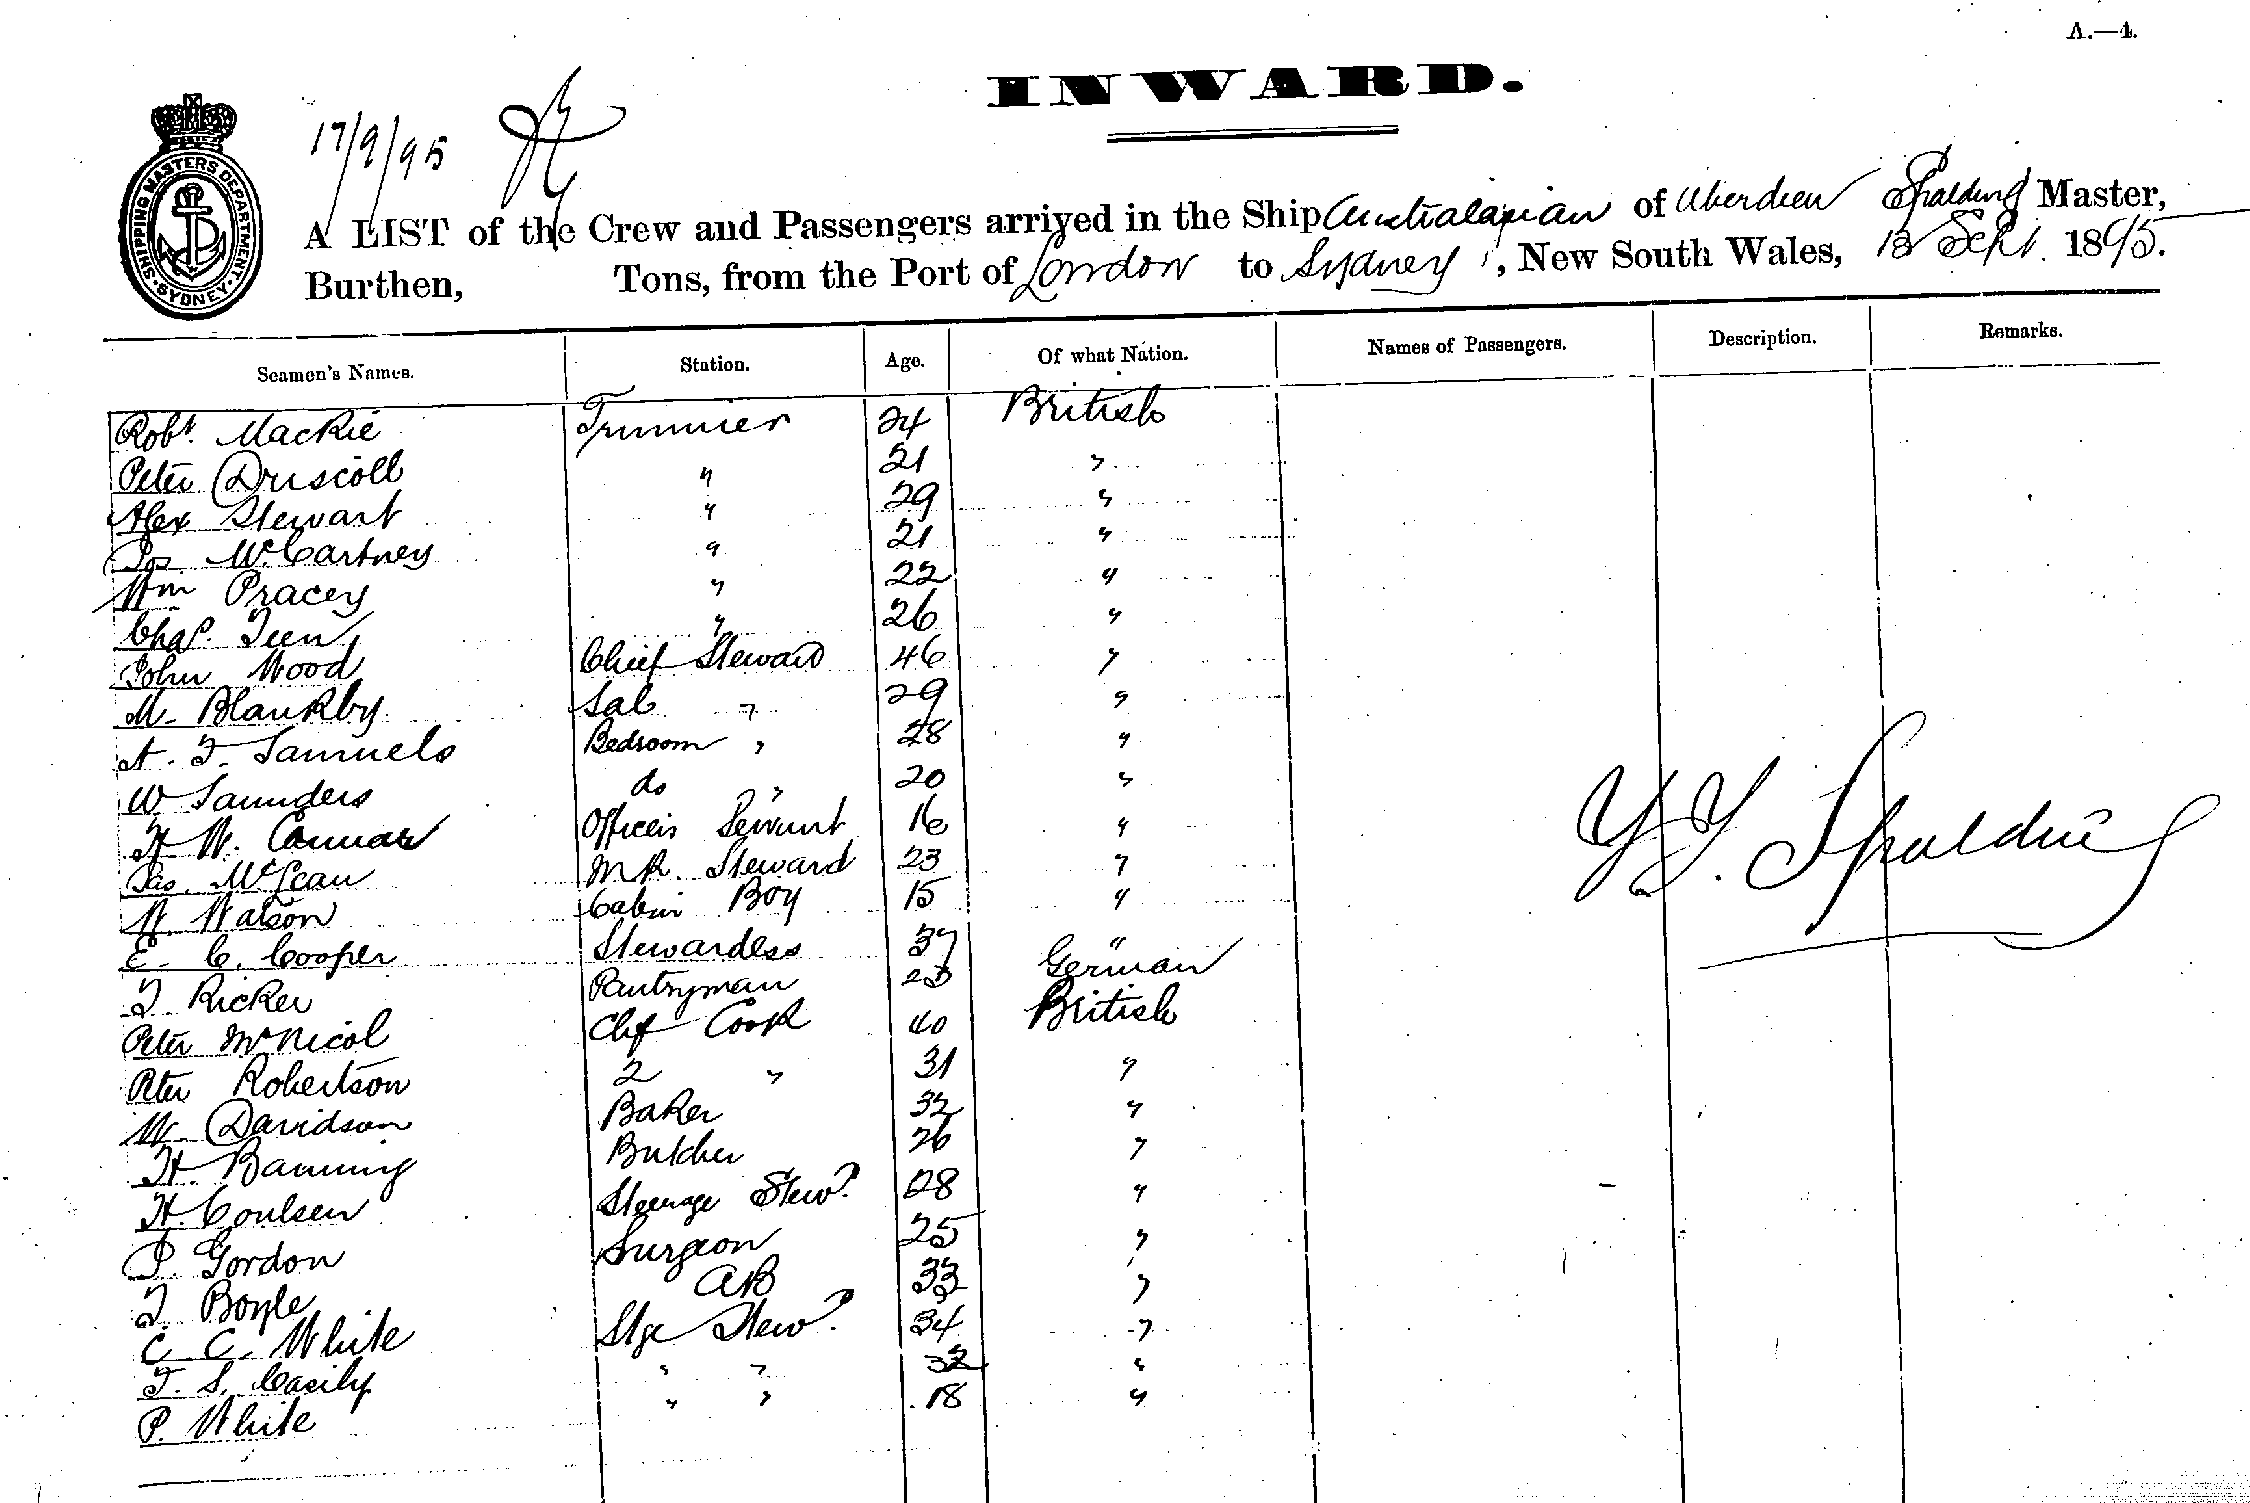 A.—4.
INWARD.
17/9/95
SHIPPING MASTERS DEPARTMENT SYDNEY
A LIST of the Crew and Passengers arrived in the Ship Australasian of Aberdeen Spalding Master,
Burthen, Tons, from the Port of London to Sydney, New South Wales, Sept. 1895.
Seamen's Names. Station. Age. Of what Nation. Names of Passengers. Description. Remarks.
Robt. Mackie Trimmer 24 British
Peter Driscoll " 21 "
Alex Stewart " 29 "
McCartney " 21 "
Wm Pracey " 22 "
Chas. Teen " 26 "
John Wood Chief Steward 46 "
M. Blankby Sal " 29 "
A. T. Samuels Bedroom " 28 "
W Saunders do " 20 "
H W. Officers Servant 16 "
Jas. McLean M R. Steward 23 "
W. Watson Cabin Boy 15 "
E. C. Cooper Stewardess 37 "
T. Ricker Pantryman German
Peter McNicol Chf Cook 40 British
Peter Robertson 2 " 31 "
W. Davidson Baker 32 "
H. Banning Butcher 26 "
H. Coulsen Steerage Stewd. 28 "
P. Gordon Surgeon 25 "
T. Boyle AB 33 "
C. C. White Stge Stewd. 34 "
T. S. Casily " " 32 "
P. White " " 18 "
Spalding